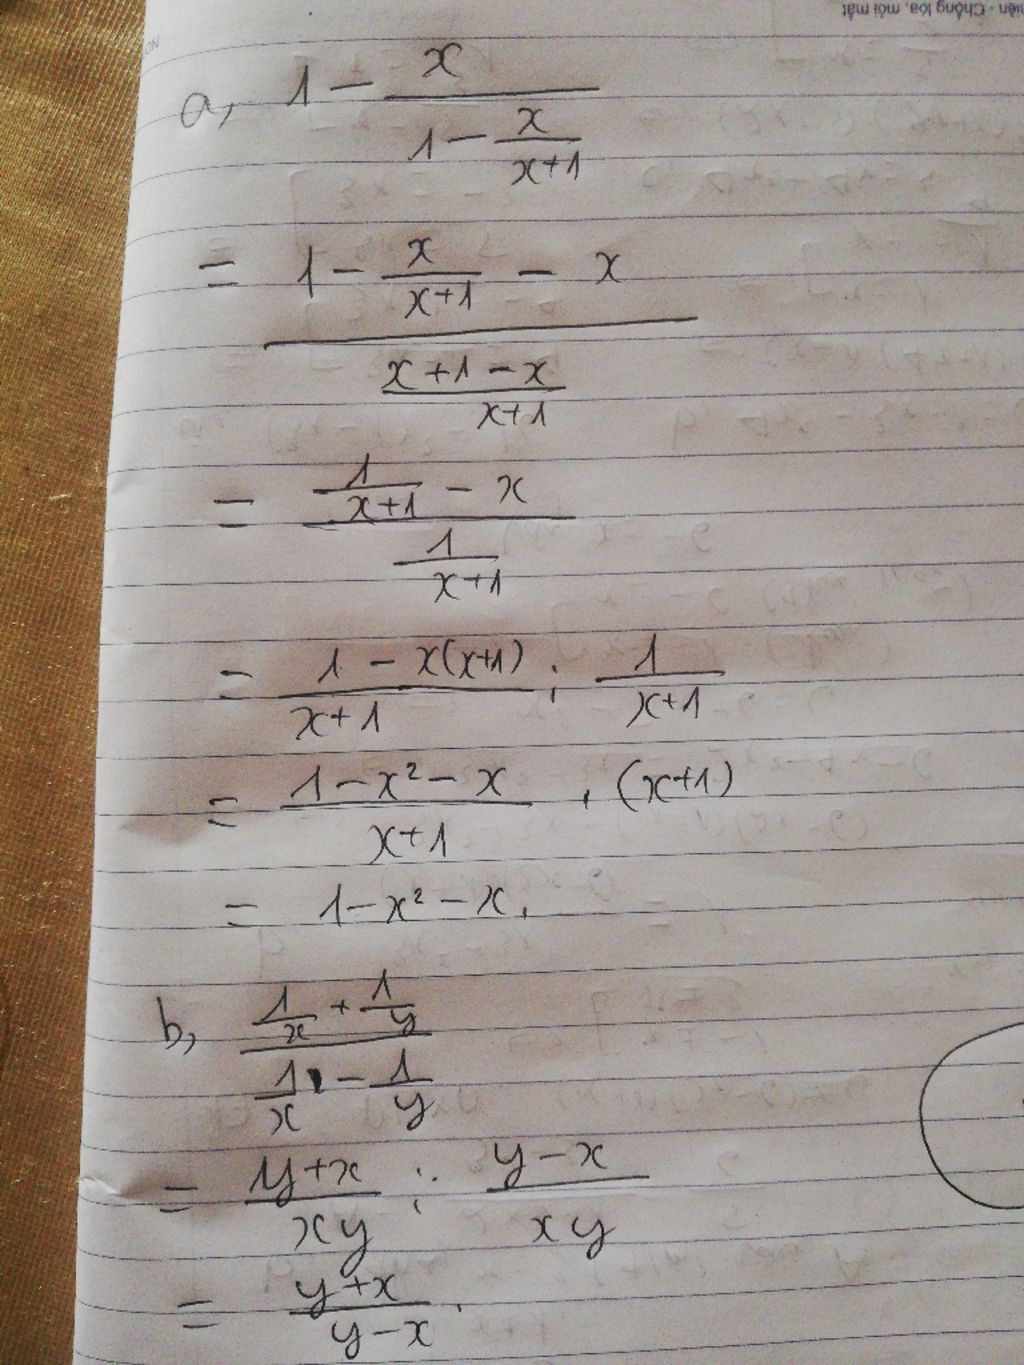 iên - Chống lóa, mỏi mắt
a, 1 - x/(1 - x/(x+1))
= (1 - x/(x+1) - x)/((x+1-x)/(x+1))
= (1/(x+1) - x)/(1/(x+1))
= (1 - x(x+1))/(x+1) : 1/(x+1)
= (1 - x² - x)/(x+1) . (x+1)
= 1 - x² - x.
b, (1/x + 1/y)/(1/x - 1/y)
= (y+x)/(xy) : (y-x)/(xy)
= (y+x)/(y-x).